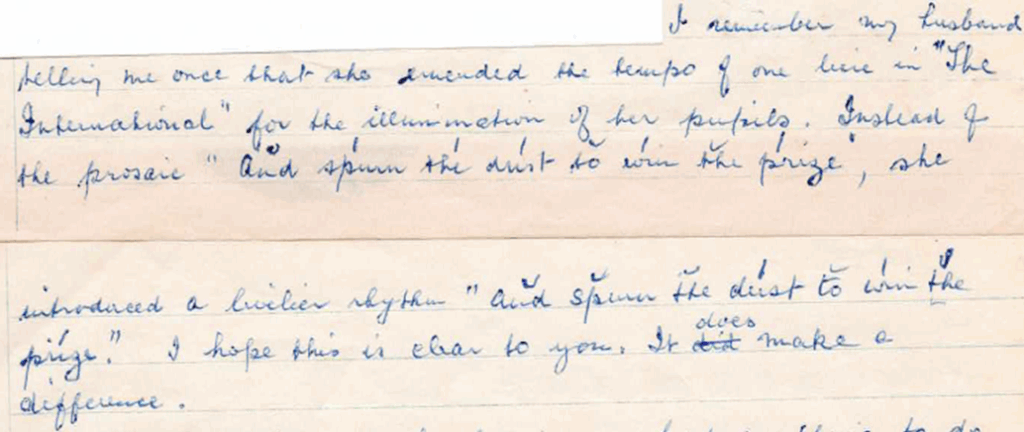 I remember my husband
telling me once that she emended the tempo of one line in "The
International" for the illumination of her pupils. Instead of
the prosaic "And spurn the dust to win the prize", she
introduced a livelier rhythm "and spurn the dust to win the
prize." I hope this is clear to you. It did does make a
difference.
to do